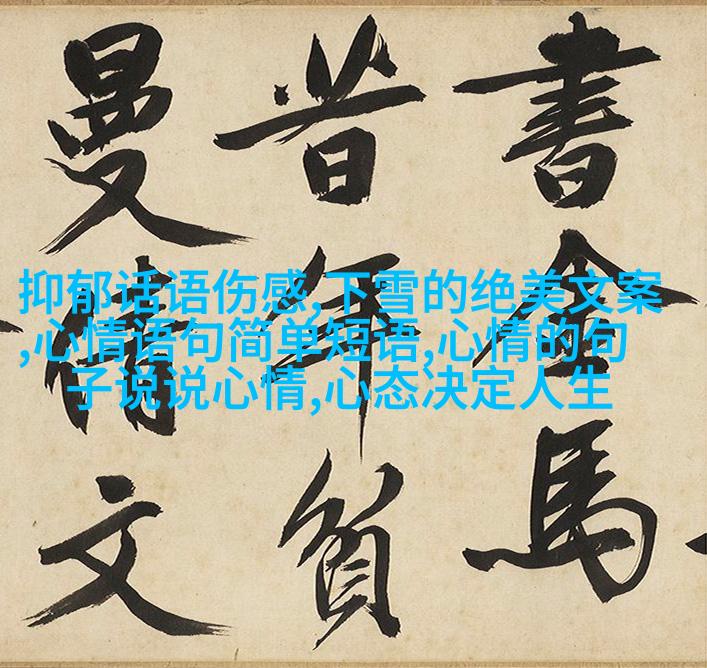 書金馬
昔年貧
曼倩文
抑郁话语伤感,下雪的绝美文案
,心情语句简单短语,心情的句
子说说心情,心态决定人生